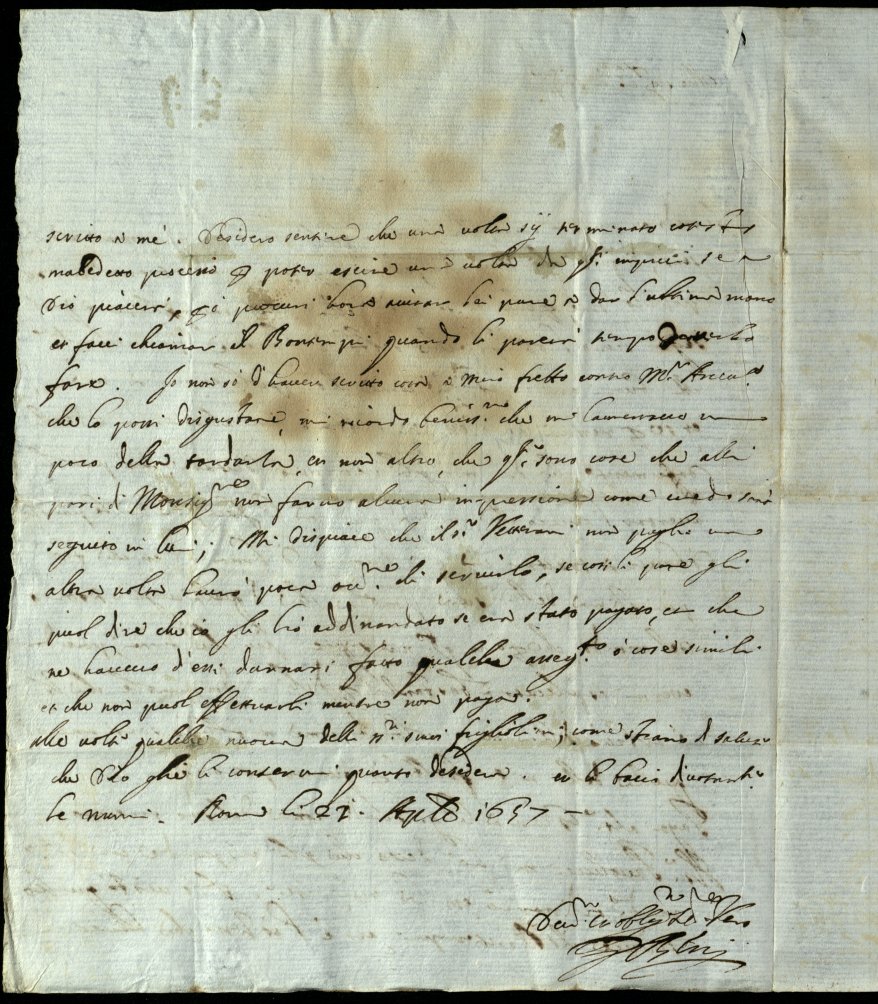 scritto à me. Desidero sentire che una volta sij terminato cotesto
maledetto processo p poter escire una volta da qsti impicci se a
Dio piacerà, et procuri hora avisar lei pure à dar l'ultima mano
et facci chiamar il Bontempi quando li parerà tempo poterlo
fare. Io non sò d'havere scritto cosa à mio frello contro Mr
che lo possi disgustare, mi ricordo beniss.mo che mi lamentavo un
poco della tardanza, et non altro, che qste sono cose che alli
pari di Monsigre non fanno alcuna impressione come credo sarà
seguito in lui; Mi dispiace che il Sr Vetterani non paghi una
altra volta haverò poca occ.ne di servirlo, se così li pare gli
puol dire che io gli hò addimandato se era stato pagato, et che
ne havevo d'essi dannari fatto qualche asseg.to ò cose simili
et che non puol effettuarli mentre non paga.
Alle volte qualche nuova delli SSri suoi figliolini; come stiano di salute
che Dio glie li conservi quanto desidera. et li bacio
le mani. Roma li 21. Aple 1657 —